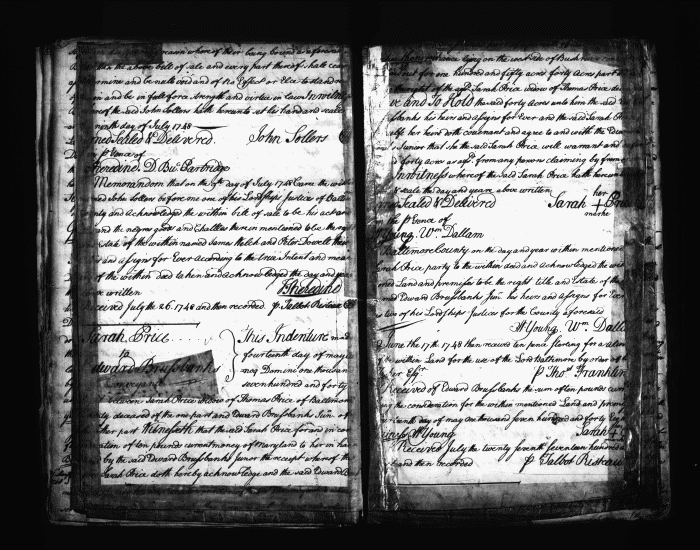 reason whereof their being bound as aforesaid
in the above bill of sale and every part thereof shall cease
determine and be utterd void and of no Effect or Else to stand
and be in full force strength and virtue in law In witness
whereof the said John Sollers hath hereunto set his hand and seal
ninth day of July 1748
Sealed & Delivered John Sollers
in Psence of
Sheredine D. Buc. Partridge
Memorandum that on the 9th day of July 1748 Came the with
named John Sollers before me one of his Lordships Justices of Balti
County and acknowledged the within bill of sale to be his act and
and the negroe goods and Chattles therein mentioned to be the right
Estate of the within named James Walsh and Peter Dowell their
and assigns for Ever According to the true Intent and mean
of the within Deed taken and acknowledged the day and year
above written Sheredine
Received July the 26. 1748 and then recorded. p Talbot Risteau
Sarah Price This Indenture made
to fourteenth day of may
Edward Brussbanks Domini one thousand
Conveyance seven hundred and forty
between Sarah Price widow of Thomas Price of Baltimore
County deceased of the one part and Edward Brussbanks Jun. of
other part Witnesseth that the said Sarah Price for and in con
of ten pounds current money of Maryland to her in hand
by the said Edward Brussbanks Junor the receipt whereof the
Sarah Price doth hereby acknowledge and the said Edward
lying on the west side of Bush
out for one hundred and fifty acres forty Acres part
the right of the said Sarah Price widow of Thomas Price
Have and To Hold the said forty acres unto him the said
his heirs and assigns for Ever and the said Sarah
her heirs doth covenant and agree to and with the Edward
Junior that she the said Sarah Price will warrant and
forty acres as afsd. from any persons claiming by from
In witness whereof the said Sarah Price hath hereunto
seale the day and year above written her
Sealed & Delivered Sarah + Price
in the Psence of marke
W Young. Wm. Dallam
Baltimore County on the day and year within mentioned
Sarah Price party to the within deed and acknowledged the with
Land and premisses to be the right title and Estate of the
said Edward Brussbanks Jun. his heirs and assigns for Ever
two of his Lordships Justices for the County aforesaid
W Young. Wm. Dallam
June the 17th. 1748 then received ten pence sterling for a alien
the within Land for the use of the Lord Baltimore by order of
Esqr. P Thos. Franklin
Received of Edward Brussbanks the sum of ten pounds curr
being the consideration for the within mentioned Land and prem
day of may one thousand seven hundred and forty Eight
Witness W Young Sarah +
Received July the twenty seventh seventeen hundred
and then recorded p Talbot Risteau